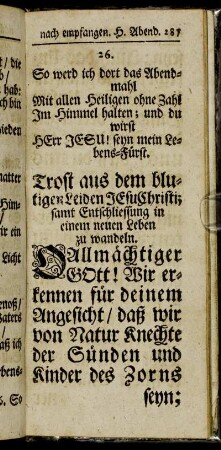 nach empfangen. H. Abend. 287
26.
So werd ich dort das Abend-
mahl
Mit allen Heiligen ohne Zahl
Im Himmel halten; und du
wirst
HErr JESU! seyn mein Le-
bens-Fürst.
Trost aus dem blu-
tigen Leiden JEsuChristi;
samt Entschliessung in
einem neuen Leben
zu wandeln.
O Allmächtiger
GOtt! Wir er-
kennen für deinem
Angesicht / daß wir
von Natur Knechte
der Sünden und
Kinder des Zorns
seyn;